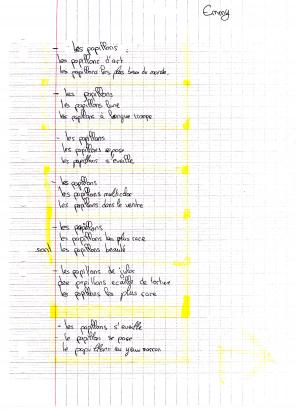 Emmy
- les papillons
les papillons d'art
les papillons les plus beau du monde.
- les papillons
les papillons lune
les papillons à longue trompe
- les papillons
les papillons repose
les papillons s'éveille
- les papillons
les papillons multicolor
les papillons dans le ventre
- les papillons
les papillons les plus rare
sont les papillons beauté
- les papillons de
des papillons écaille de tortue
les papillons les plus rare
- les papillons s'éveille
le papillon se pose
le papillons au yeux marron